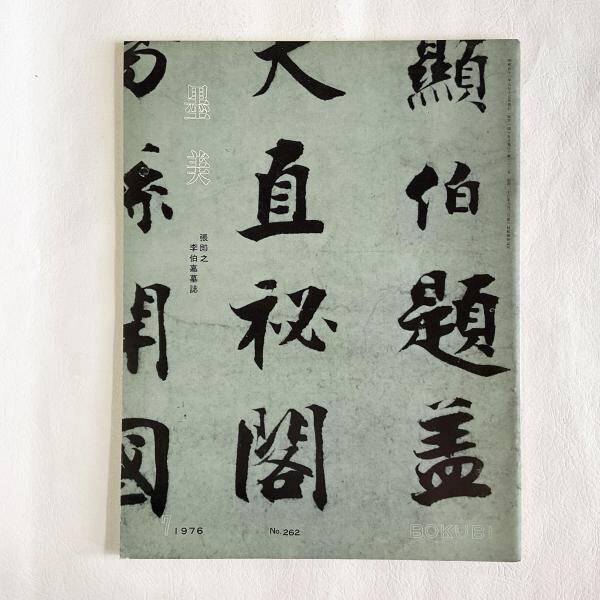 顯伯題盖
大直祕閣
系開國
墨美
張即之
李伯嘉墓誌
7 1976
No. 262
BOKUBI